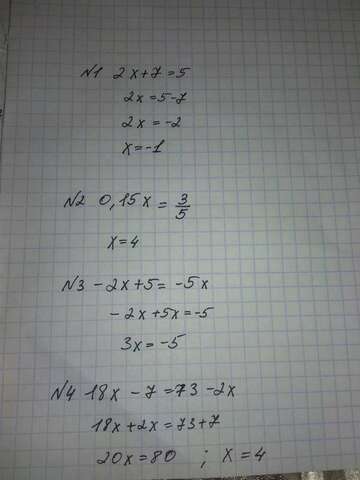 №1 2x+7=5
2x=5-7
2x=-2
x=-1
№2 0,15x = 3/5
x=4
№3 -2x+5=-5x
-2x+5x=-5
3x=-5
№4 18x-7=73-2x
18x+2x=73+7
20x=80 ; x=4